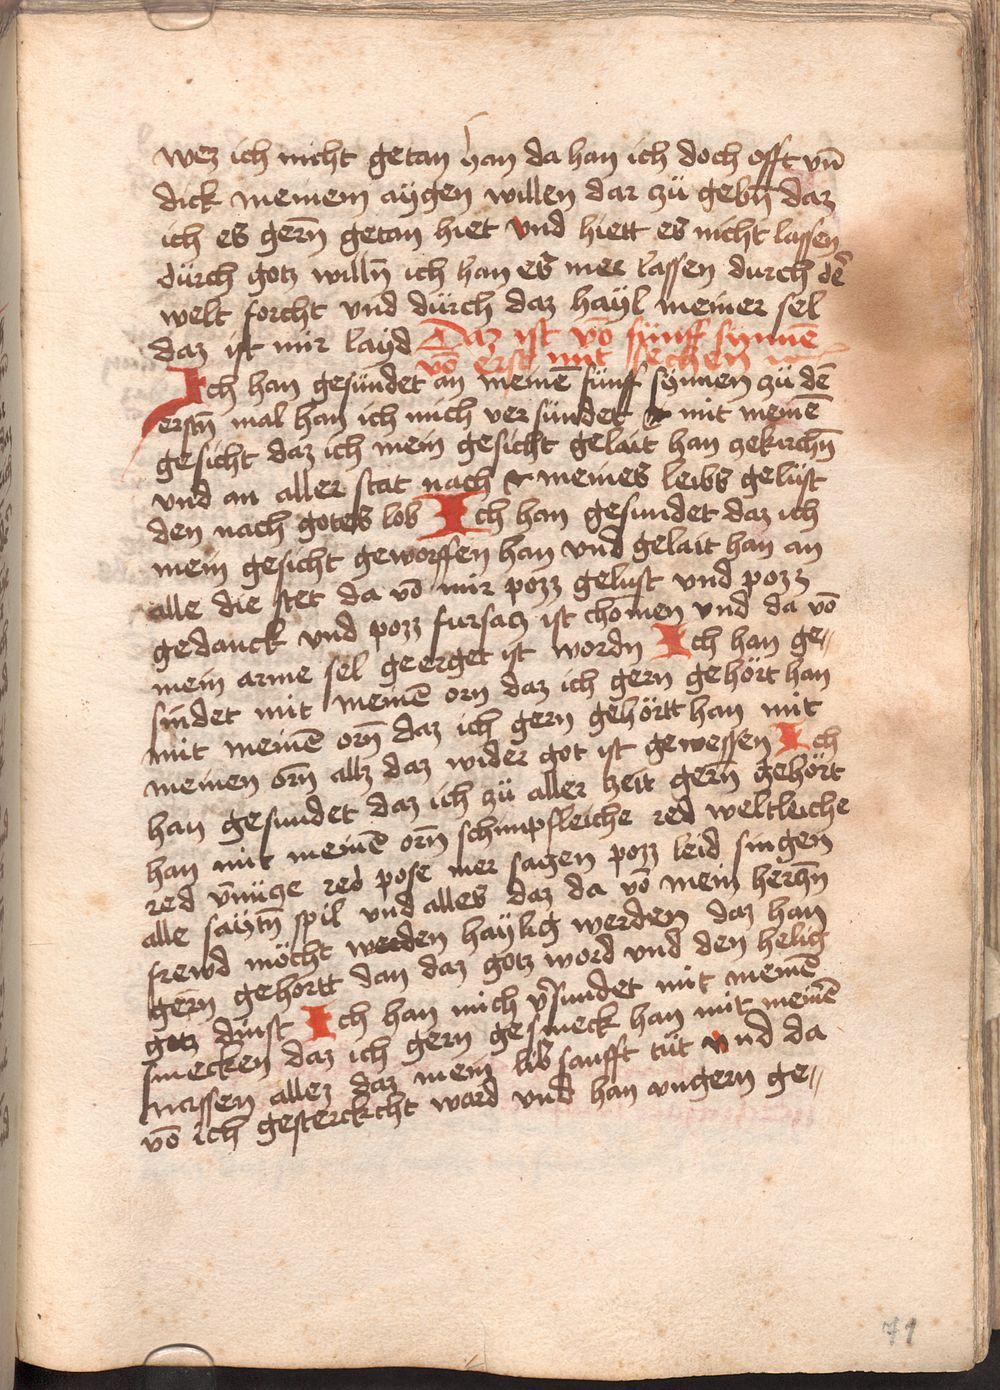 wez ich nicht getan han da han ich doch offt vn̄
dick meinem aygen willen dar zü gebn̄ daz
ich es gern̄ getan hiet vnd hiett es nicht lassen
dürch gotz willn̄ ich han es mer lassen durch dē
welt forcht vnd dürch daz hayl meiner sel
daz ist mir layd Daz ist vō fünff synnē
vō erst mit sechen
Ich han gesündet an meinē fünff synnen zü dē
erstn̄ mal han ich mich ver sündet mit meinē
gesicht daz ich mein gesicht gelait han ze kirchn̄
vnd an aller stat nach meines leibs gelüst
den nach gotes lob Ich han gesundet daz ich
mein gesicht geworffen han vnd gelait han an
alle die stet da vō mir pozz gelust vnd pozz
gedanck vnd pozz fursatz ist chōmen vnd da vō
mein arme sel geerget ist wordn Ich han ge„
sündet mit meinē orn daz ich gern gehört han
mit meinē orn̄ daz ich gern gehörtt han mit
meinen orn̄ allz daz wider got ist gewessen Ich
han gesundet daz ich zü aller zeit gern̄ gehört
han mit meinē orn̄ schimpfleiche red weltleiche
red vn̄nüze red pose mer sagen pozz leid singen
alle saÿtn̄ spil vnd alles daz da vō mein herczn̄
frewd möcht werden haylig werden daz han
gern gehortt dan daz gotz word vnd den helig
gotz dinst Ich han mich v̄sundet mit meinē
smecken daz ich gern gesmeck han mit meinē
nassen allez daz mein lib sanfft tüt vnd da
vō ich gesterckcht ward vnd han vngern ge„
71